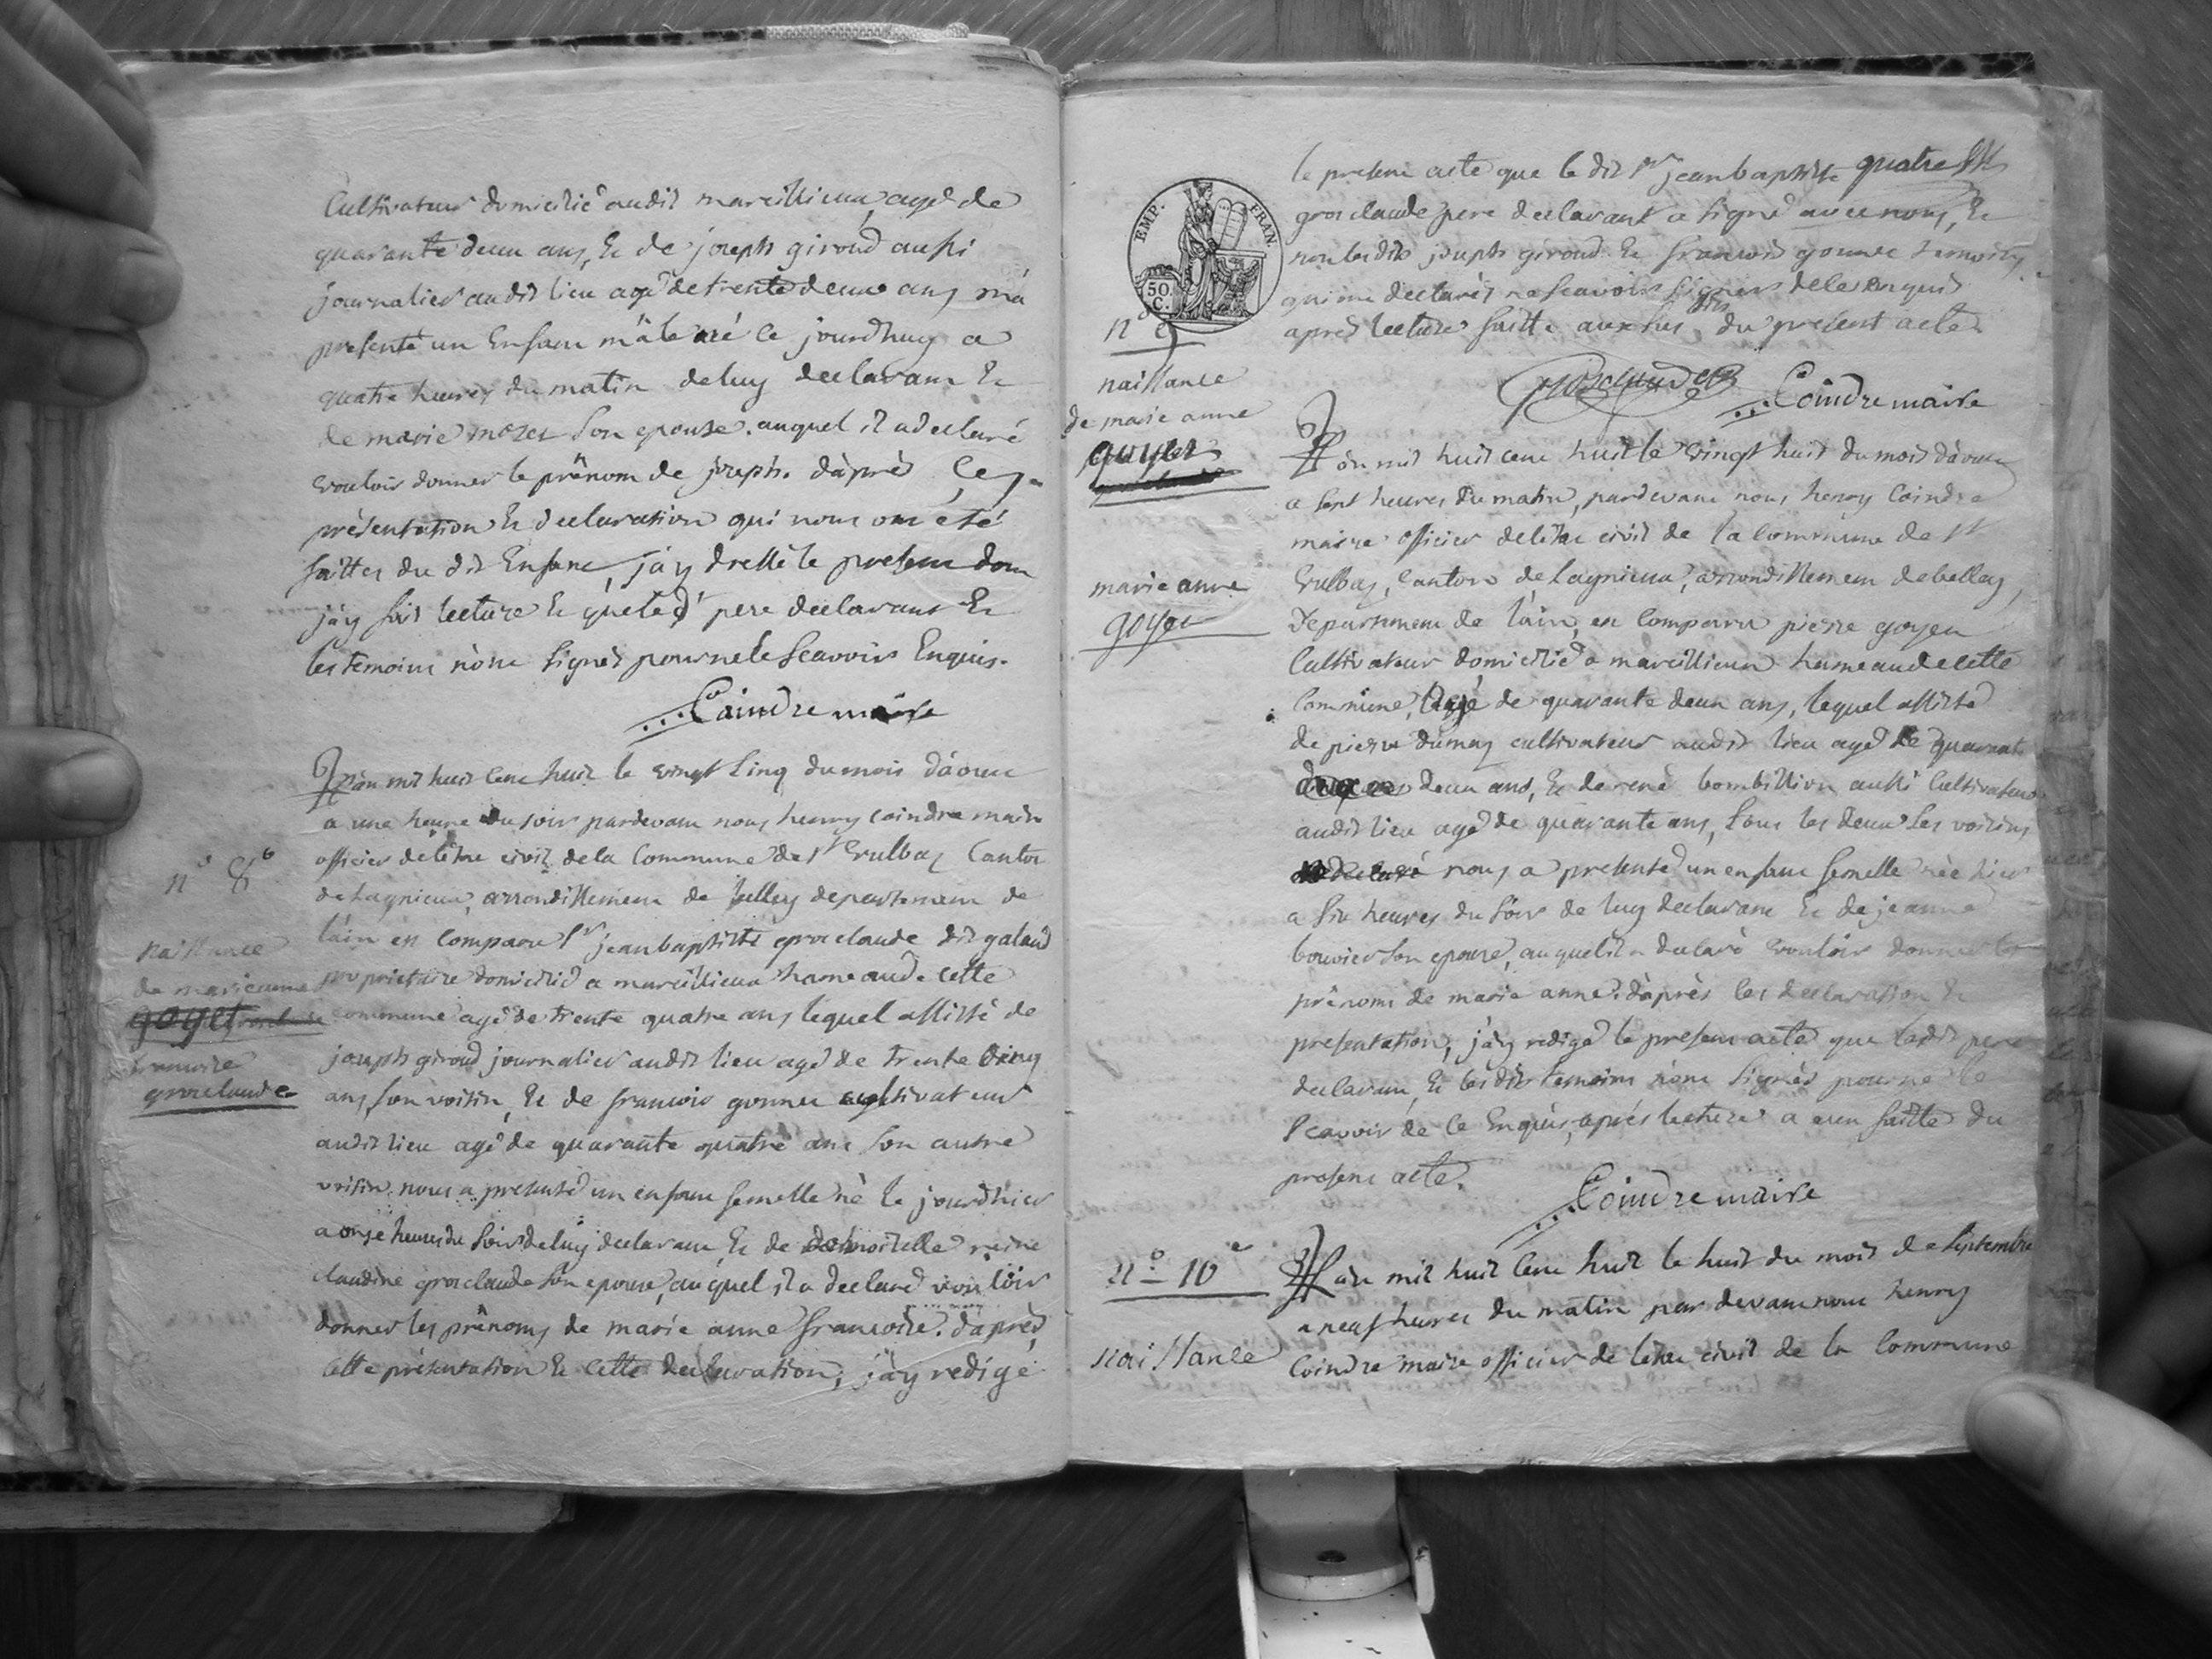 Cultivateur domicilié audit marcillieux, agé de
quarante deux ans, & de joseph giroud aussi
journalier audit lieu agé de trente deux ans m'a
presenté un Enfant mâle né ce jourdhuy a
quatre heures du matin de luy declarant &
de marie son epouse, auquel il a declaré
vouloir donner le prénom de joseph. d'après ces
présentation & declaration qui nous ont été
faittes du dit Enfant, j'ay dressé le present dont
j'ay fait lecture & que led' pere declarant &
les temoins n'ont signés pour ne le scavoir Enquis.
Coindre maire
n° 8e
naissance
de marieanne
goyet
francoise
groclaude
L'an mil huit cent huit le vingt cinq du mois d'aout
a une heure du soir pardevant nous henry coindre maire
officier de l'état civil de la Commune de st vulbas Canton
de Lagnieux, arrondissement de belley departement de
l'ain est comparu sr jeanbaptiste groclaude dit galand
proprietaire domicilié a marcillieux hameau de cette
commune agé de trente quatre ans lequel assisté de
joseph giroud journalier audit lieu agé de trente cinq
ans son voisin, & de francois gonnet cultivateur
audit lieu agé de quarante quatre ans son autre
voisin, nous a presenté un enfant femelle né le jourdhier
a onze heures du soir de luy declarant & de demoiselle reine
claudine groclaude son epouse, auquel il a declaré vouloir
donner les prénoms de marie anne francoise. d'après
cette présentation & cette declaration, j'ay redigé
EMP. FRAN.
50 C.
le present acte que le dit sr jeanbaptiste quatre
groclaude pere declarant a signé avec nous, &
non lesdits joseph giroud & francois gonnet temoins
qui ont declarés ne scavoir signer de ce enquis
après lecture faitte aux sus dits du present acte
Coindre maire
n° 9
naissance
de marie anne
goyet
marie anne
goyet
L'an mil huit cent huit le vingt huit du mois d'aout
a sept heures du matin, pardevant nous henry Coindre
maire officier de l'état civil de la commune de st
vulbas, canton de Lagnieux, arrondissement de belley,
Departement de l'ain, est comparu pierre goyet
Cultivateur domicilié a marcillieux hameau de cette
Commune, agé de quarante deux ans, lequel assisté
de pierre dumas cultivateur audit lieu agé de quarante
deux ans, & de rené bombillion aussi Cultivateur
audit lieu agé de quarante ans, tous les deux ses voisins
nous a presenté un enfant femelle née hier
a six heures du soir de luy declarant & de jeanne
bouvier son epouse, auquel il a declaré vouloir donner les
prénoms de marie anne. d'après les declaration &
presentation, j'ay redigé le present acte que ledit pere
declarant, & lesdits temoins n'ont signés pour ne le
scavoir de ce Enquis, après lecture a eux faitte du
present acte.
Coindre maire
n° 10e
naissance
L'an mil huit cent huit le huit du mois de septembre
a neuf heures du matin par devant nous henry
Coindre maire officier de l'état civil de la Commune